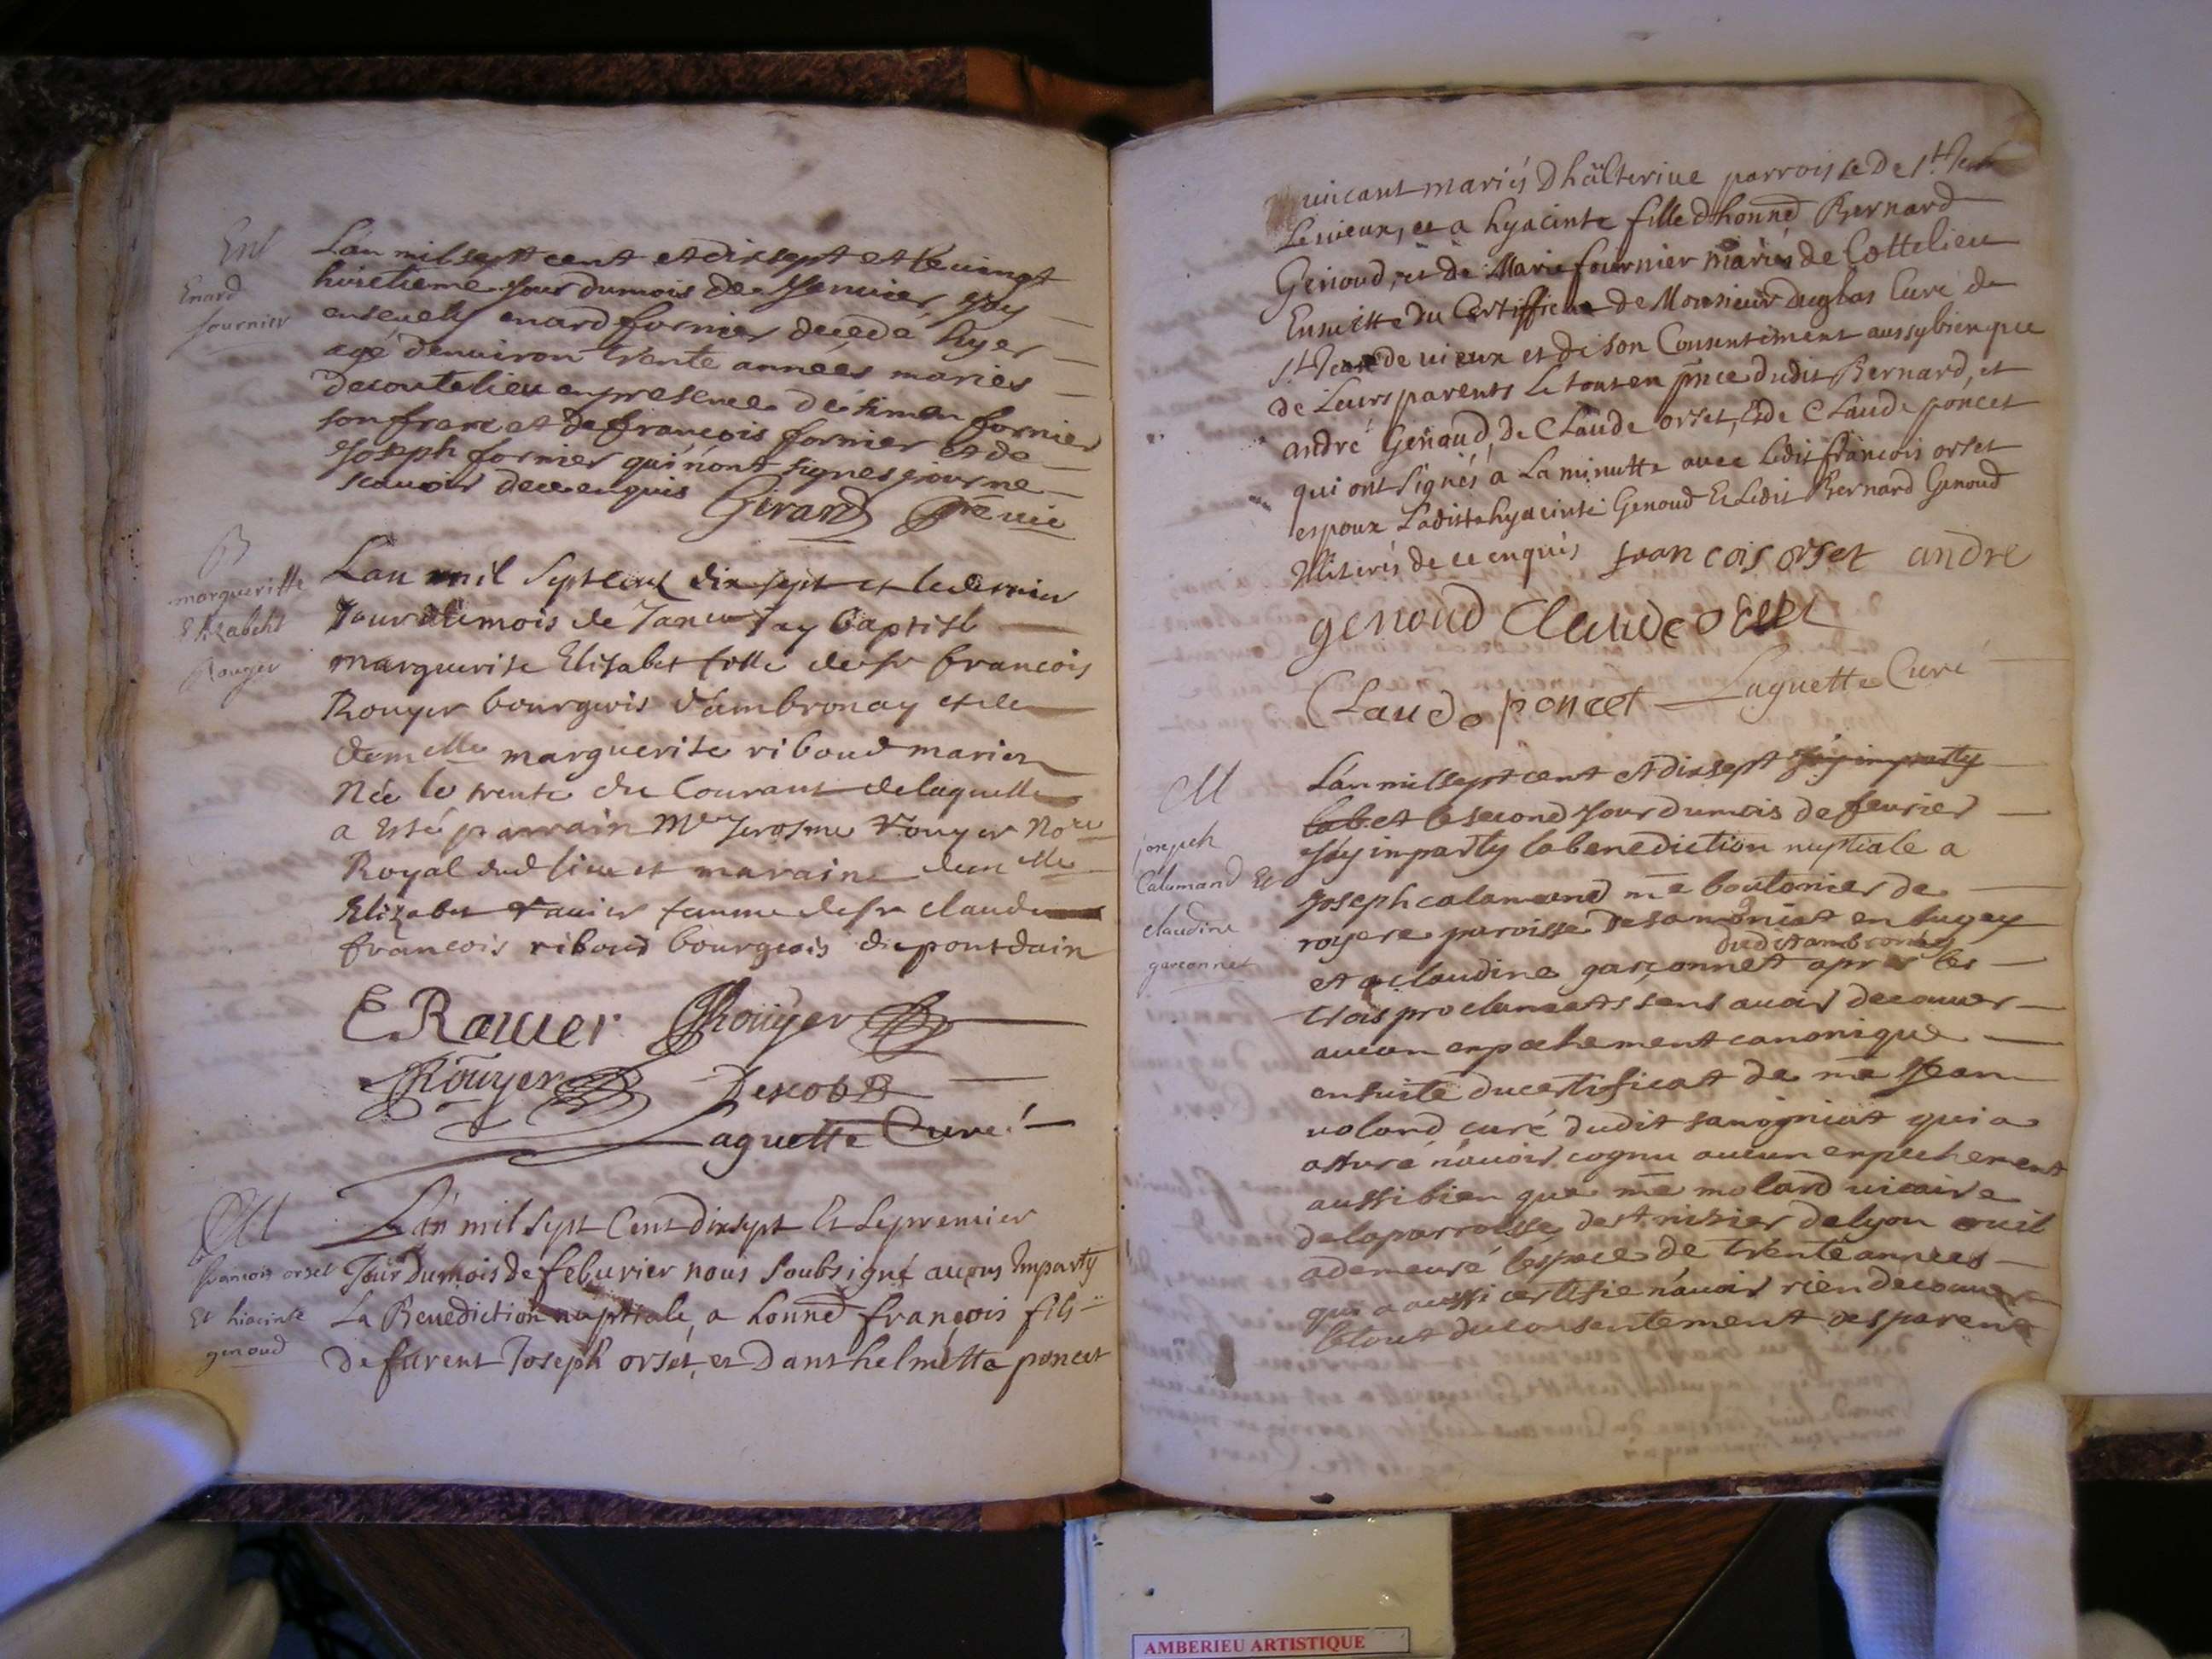 Ent
Enard
fournier
Lan mil sept cent et dix sept et le vingt
huictieme jour du mois de Janvier j'ay
ensevely enard fornier decedé hyer
agé denuiron trente années mariés
de coutelieu en presence de simon fornier
son frere et de françois fornier et de
Joseph fornier qui n'ont signes pour ne
scauoir de ce enquis Girard pre vic
B
margueritte
Elizabeht
Rouyer
Lan mil Sept cent dix sept et le dernier
Jour du mois de Janer Jay baptisé
marguerite Elisabet fille de sr francois
Rouyer bourgeois d'ambronay et de
demelle marguerite riboud mariés
Née le trente du Courant de laquelle
a Esté parrain Me Jerosme rouyer Nore
Royal dud lieu et maraine demelle
Elizabet ravier femme de sr claude
francois riboud bourgeois du pontdain
E Ravier Rouyer
Rouyer Descobz
Laguette Curé
M
francois orset
Et hiacinte
genoud
Lan mil sept Cent dixsept Et Le premier
Jour du mois de feburier nous soubsigné auons Imparty
La Benediction nuptiale, a honned françois fils
de furent Joseph orset, et Danthelmette poncet
uiuant mariés Dhaulteriue parroisse De St
Le uieux, et a hyacinte fille d honned Bernard
Genoud, et de Marie fournier mariés de Cottelieu
Ensuitte du Certifficat de Monsieur duglas Curé de
St Jean de uieux et de son Consentement aussy bien que
de Leurs parents Le tout en pnce dudit Bernard, et
andré Genoud, de Claude orset, Et de Claude poncet
qui ont signés a La minutte auec Ledit francois orset
espoux Laditte hyacinte Genoud Et Ledit Bernard Genoud
Illiterés de ce enquis fran cois orset andre
genoud Claude orset
Claude poncet Laguette Curé
M
joseph
Calamand Et
claudine
garconnet
Lan mil sept cent et dix sept j'ay imparty
la b et le second jour du mois de feurier
J'ay imparty la benediction nuptiale a
Joseph calamand me boutonier de
royere paroisse de samoniat en bugey
dudit ambronay
et a claudine garçonnet apres les
trois proclamats sens auoir decouuer
aucun enpechement canonique
ensuite du certificat de me Jean
volard curé dudit samogniat qui a
assuré n'auoir cognu aucun enpechement
aussi bien que me molard uicaire
de la parroisse de st nisier de lyon ou il
a demeuré l'espace de trente années
qui a aussi certifie n'auoir rien decouuer
le tout du consentement des parens
AMBERIEU ARTISTIQUE